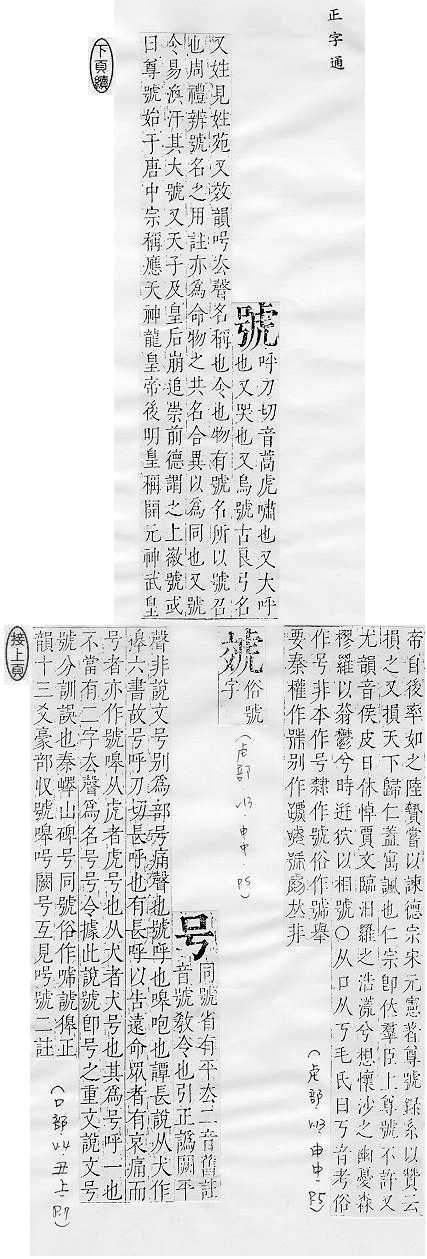 正字通
號
呼刀切音蒿虎嘯也又大呼
也又哭也又烏號古良弓名
又姓見姓苑又效韻号去聲名稱也令也物有號名所以號召
也周禮辨號名之用註亦為命物之共名合異以為同也又號
令易渙汗其大號又天子及皇后崩追崇前德謂之上徽號或
曰尊號始于唐中宗稱應天神龍皇帝後明皇稱開元神武皇
下頁續
接上頁
帝自後率如之陸贄嘗以諫德宗宋元憲著尊號錄系以贊云
損之又損天下歸仁蓋寓諷也仁宗卽位羣臣上尊號不許又
尤韻音侯皮日休悼賈文臨汨羅之浩蕩兮想懷沙之幽憂森
樛羅以蓊鬱兮時狖以相號○从口从丂毛氏曰丂音考俗
作号非本作号隸作號俗作舉
要秦權作別作並非
(虍部 申中 P.5)
俗號
字
(虍部 申中 P.5)
号
同號省有平去二音舊註
音號敎令也引正譌闕平
聲非說文号別為部号痛聲也號呼也嘷咆也譚長說从犬作
嘷六書故号呼刀切長呼也有長呼以告遠命眾者有哀痛而
号者亦作號嘷从虎者虎号也从犬者犬号也其為号呼一也
不當有二字去聲為名号号令據此說號卽号之重文說文号
號分訓誤也秦嶧山碑号同號俗作獋正
韻十三爻豪部收號嘷呺闕号互見呺號二註
(口部 丑上 P.7)